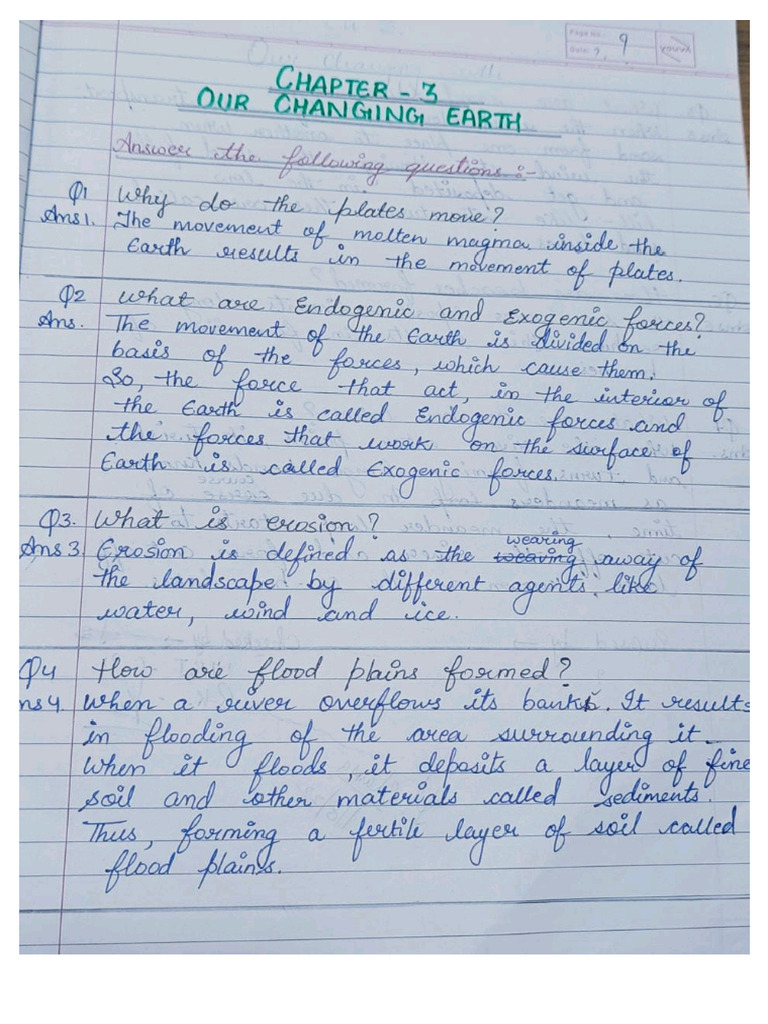 Page No. 9
Date:
youva
CHAPTER - 3
OUR CHANGING EARTH
Answer the following questions :-
Q1 Why do the plates move?
Ans1. The movement of molten magma inside the
Earth results in the movement of plates.
Q2 What are Endogenic and Exogenic forces?
Ans. The movement of the Earth is divided on the
basis of the forces, which cause them.
So, the force that act, in the interior of
the Earth is called Endogenic forces and
the forces that work on the surface of
Earth is called Exogenic forces.
Q3. What is erosion?
wearing
Ans 3. Erosion is defined as the away of
the landscape by different agents like
water, wind and ice.
Q4 How are flood plains formed?
ns 4. When a river overflows its banks. It results
in flooding of the area surrounding it.
When it floods, it deposits a layer of fine
soil and other materials called sediments.
Thus, forming a fertile layer of soil called
flood plains.